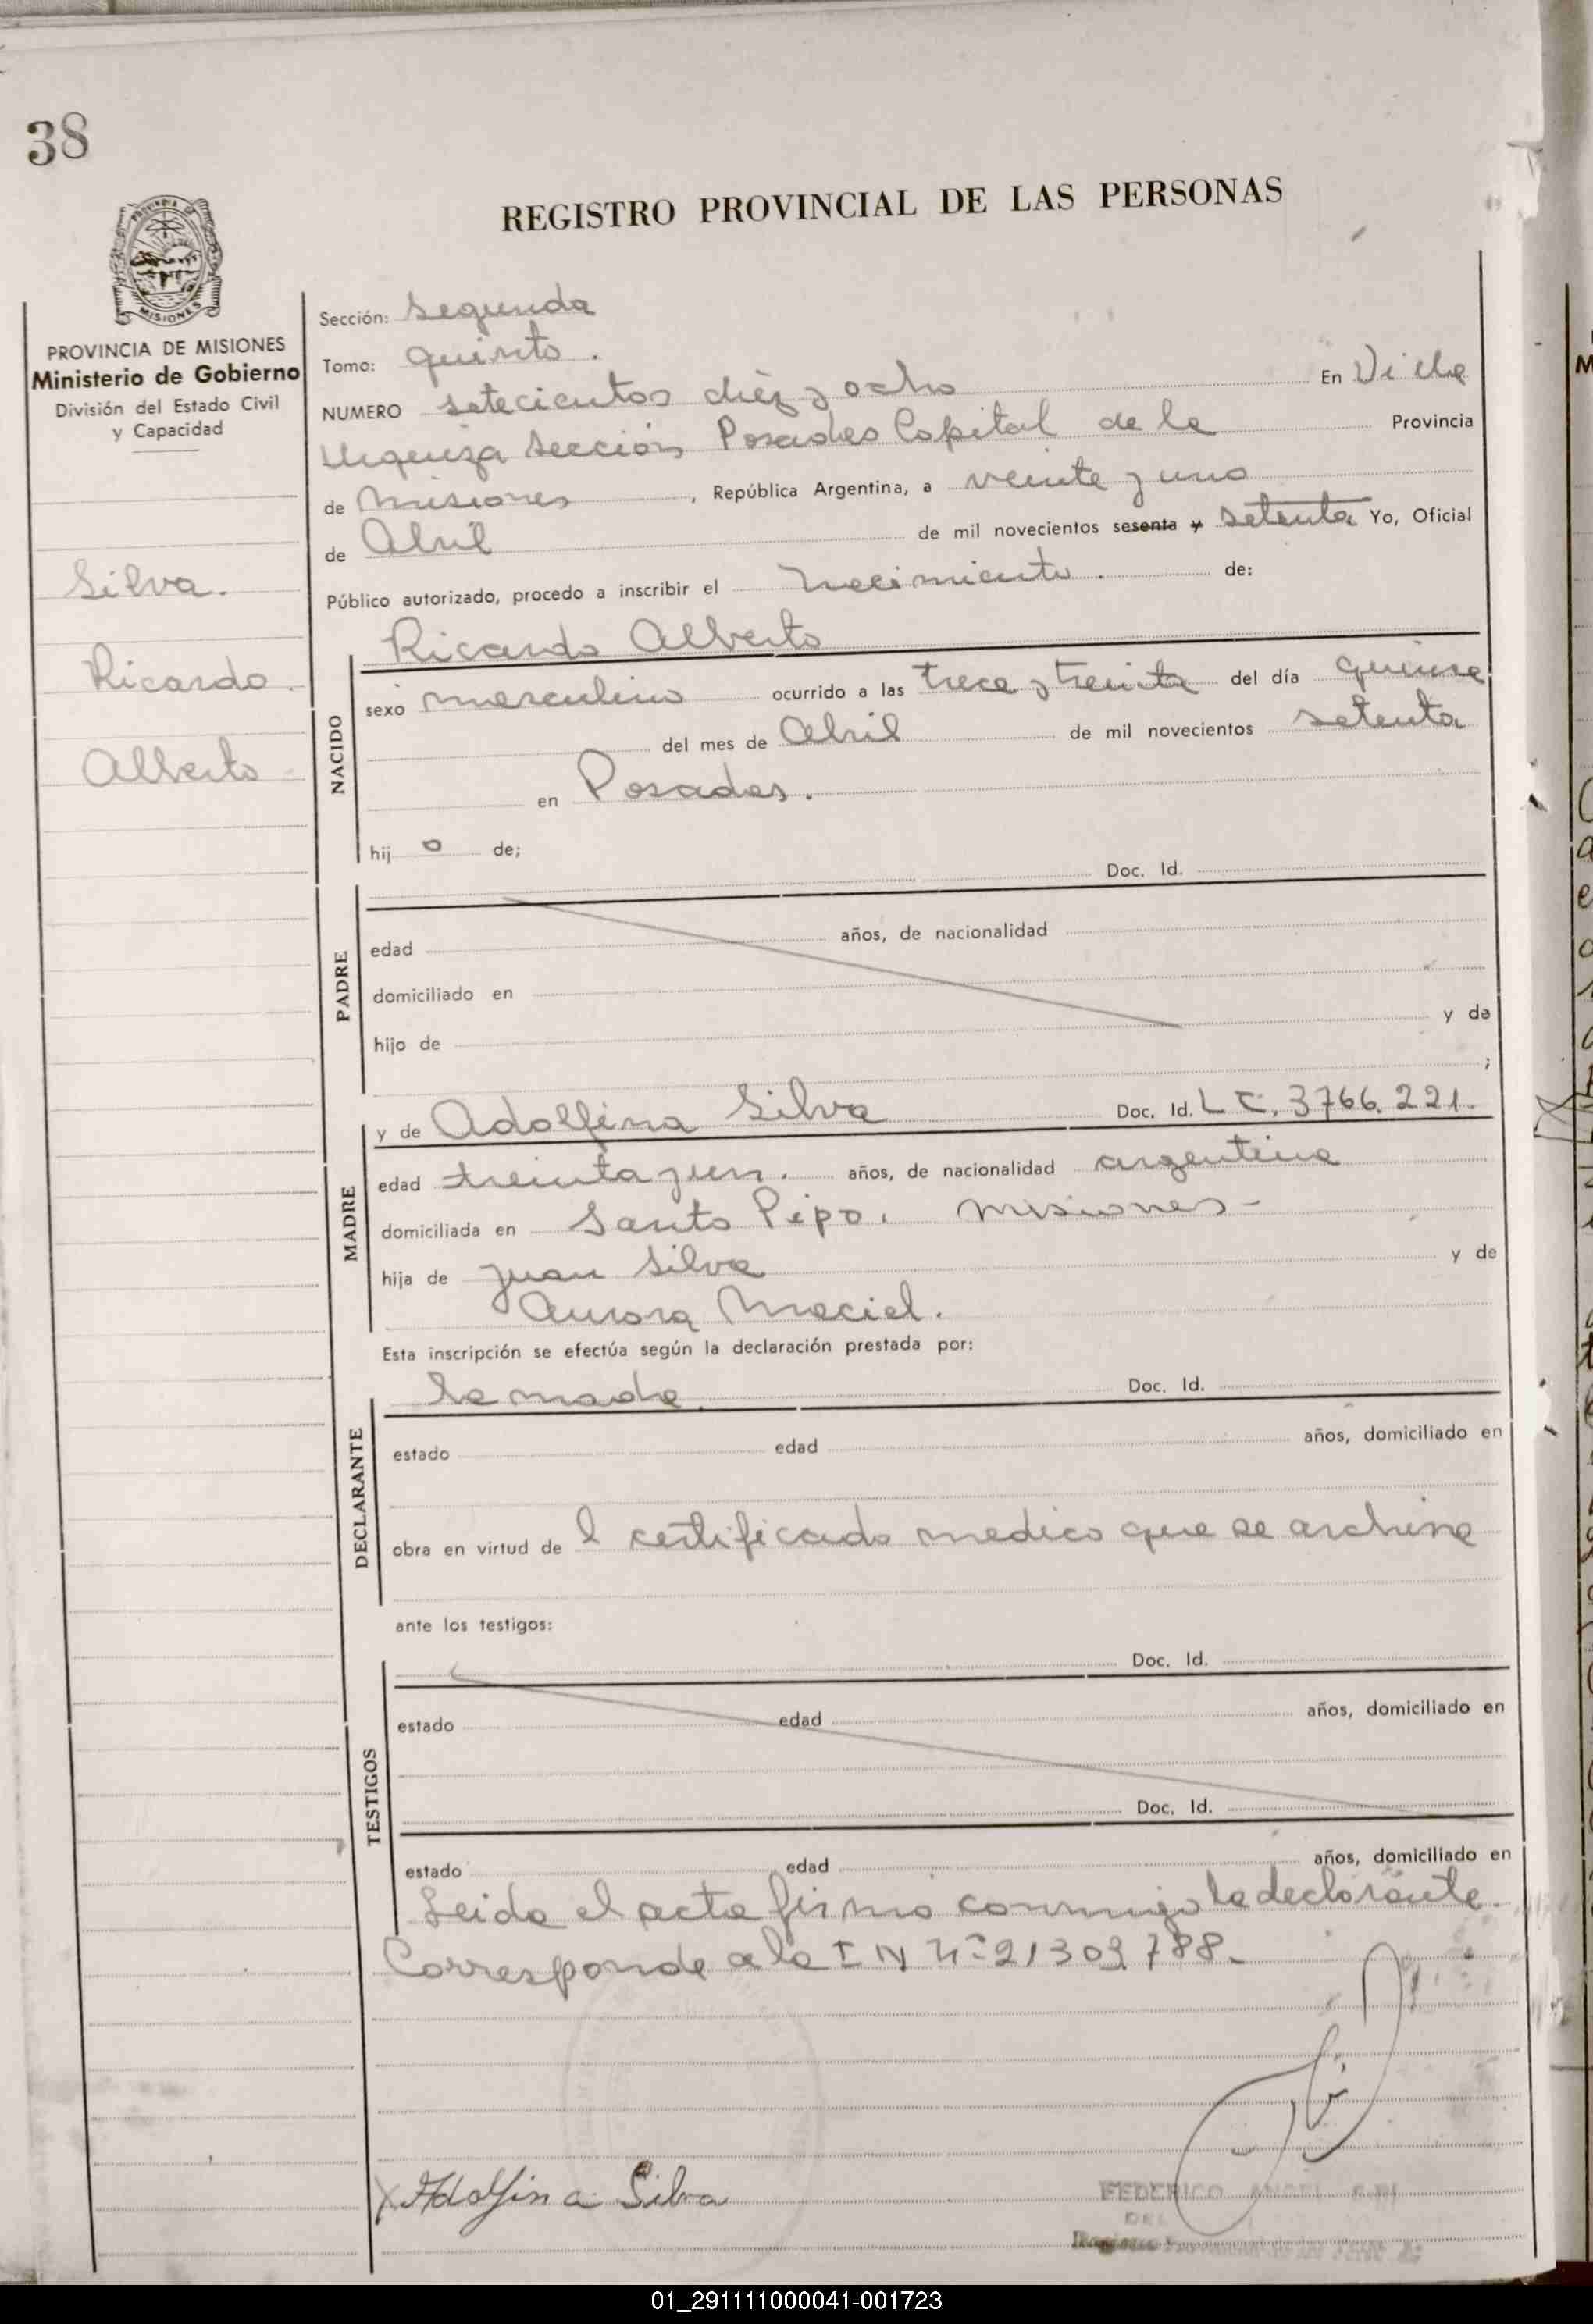 38
REGISTRO PROVINCIAL DE LAS PERSONAS
MISIONES
PROVINCIA DE MISIONES
Ministerio de Gobierno
División del Estado Civil
y Capacidad
Silva.
Ricardo.
Alberto
Sección: Segunda
Tomo: quinto.
NUMERO setecientos diez y ocho En Villa
Urquiza Sección Posadas Capital de la Provincia
de Misiones, República Argentina, a veinte y uno
de Abril de mil novecientos sesenta y setenta Yo, Oficial
Público autorizado, procedo a inscribir el nacimiento. de:
NACIDO
Ricardo Alberto
sexo masculino ocurrido a las trece y treinta del día quince
del mes de Abril de mil novecientos setenta
en Posadas.
hijo de;
PADRE
Doc. Id.
edad años, de nacionalidad
domiciliado en
hijo de y de
;
MADRE
y de Adolfina Silva Doc. Id. L C. 3766.221.
edad treinta y un. años, de nacionalidad argentina
domiciliada en Santo Pipo. Misiones-
hija de Juan Silva y de
Aurora Maciel.
Esta inscripción se efectúa según la declaración prestada por:
DECLARANTE
la madre. Doc. Id.
estado edad años, domiciliado en
obra en virtud de l certificado medico que se archiva
ante los testigos:
TESTIGOS
Doc. Id.
estado edad años, domiciliado en
Doc. Id.
estado edad años, domiciliado en
Leida el acta firmó conmigo la declarante.
Corresponde a la I N Nº 21303788.
X Adolfina Silva
FEDERICO ANGEL
DEL
01_291111000041-001723